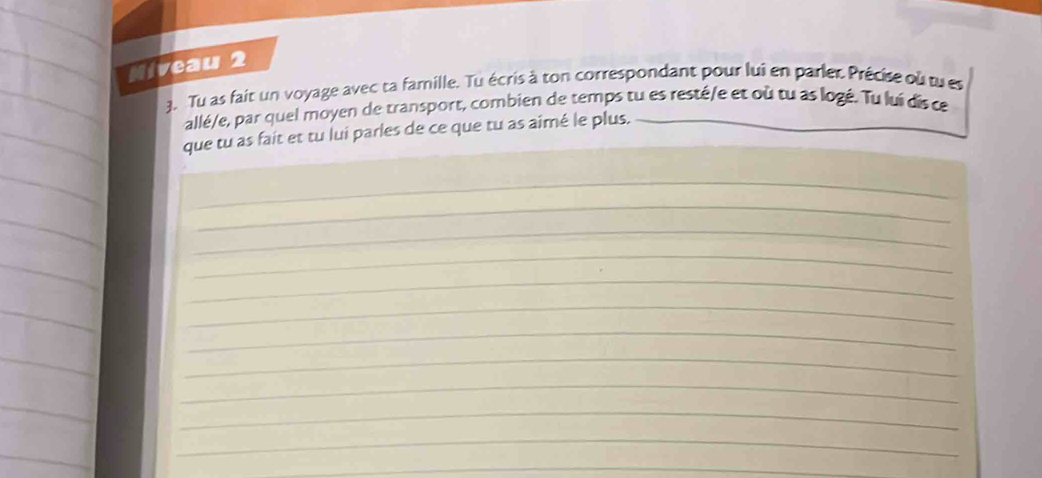 Niveau 2
3. Tu as fait un voyage avec ta famille. Tu écris à ton correspondant pour lui en parler. Précise où tu es
allé/e, par quel moyen de transport, combien de temps tu es resté/e et où tu as logé. Tu lui dis ce
que tu as fait et tu lui parles de ce que tu as aimé le plus.